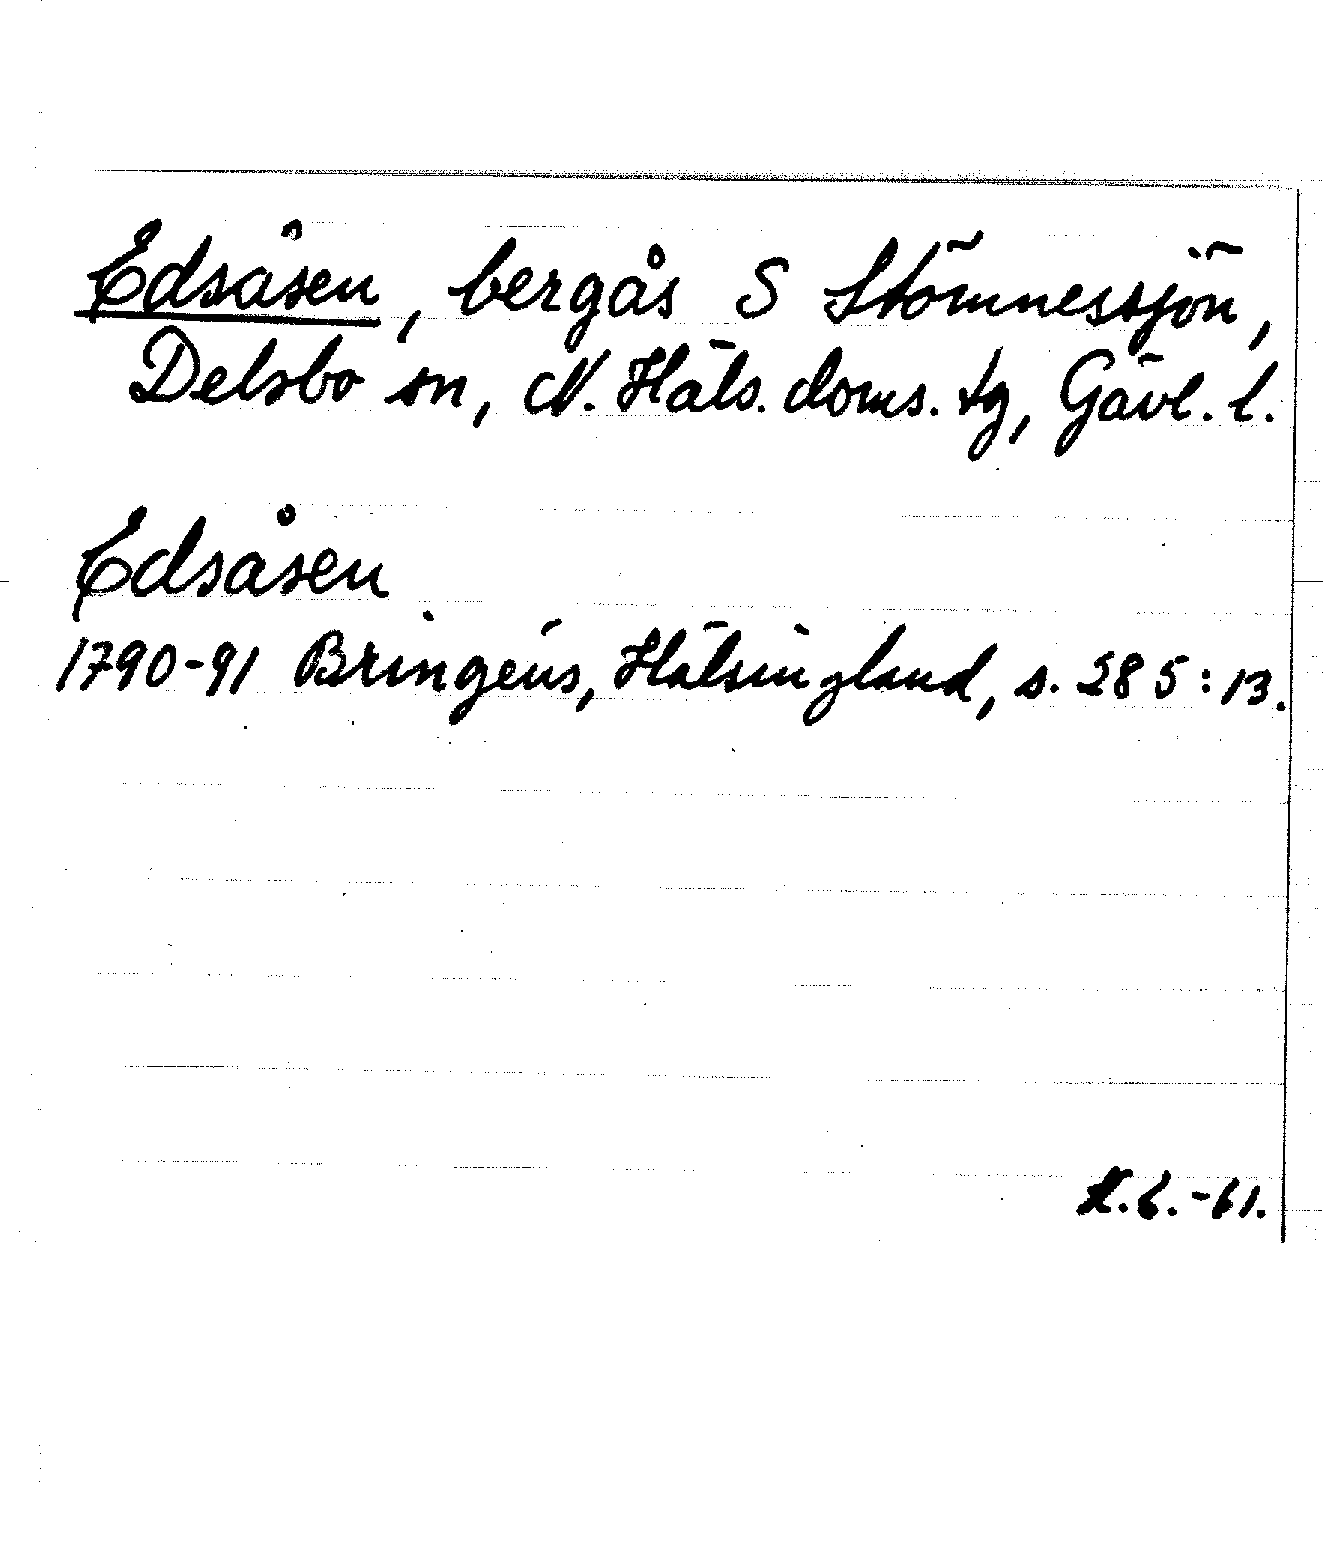 Edsåsen, bergås S Stömnessjön,
Delsbo sn, N. Häls. doms. tg, Gävl. l.
Edsåsen
1790-91 Bringéus, Hälsingland, s. 285:13.
-61.